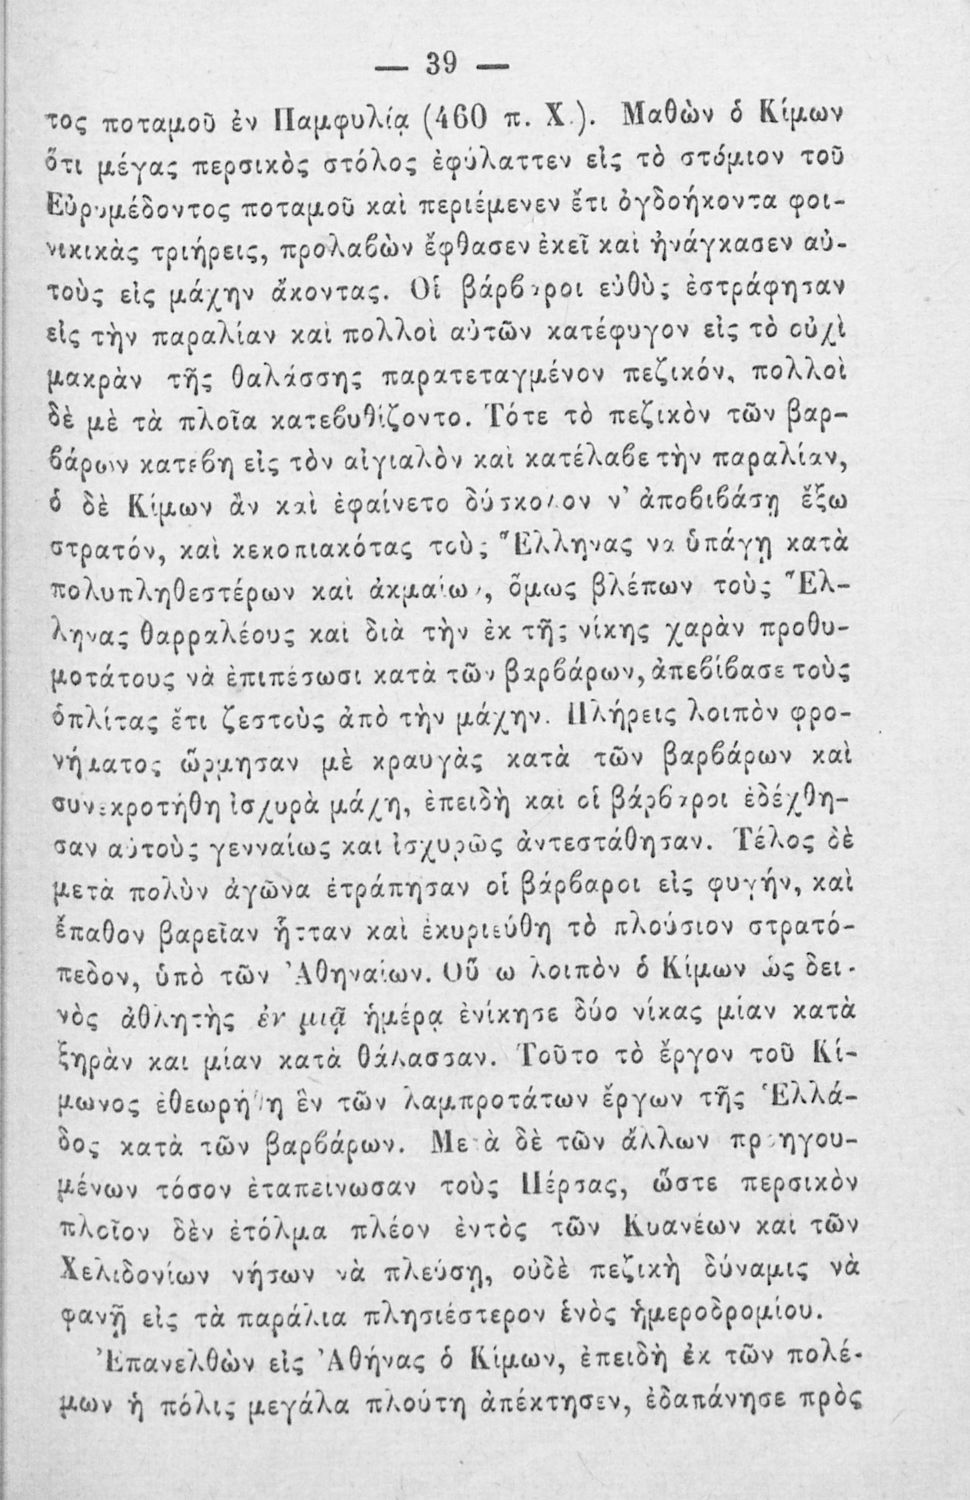 — 39 —
τος ποταμοῦ ἐν Παμφυλίᾳ (460 π. Χ.). Μαθὼν ὁ Κίμων
ὅτι μέγας περσικὸς στόλος ἐφύλαττεν εἰς τὸ στόμιον τοῦ
Εὐρυμέδοντος ποταμοῦ καὶ περιέμενεν ἔτι ὀγδοήκοντα φοι-
νικικὰς τριήρεις, προλαβὼν ἔφθασεν ἐκεῖ καὶ ἠνάγκασεν αὐ-
τοὺς εἰς μάχην ἄκοντας. Οἱ βάρβαροι εὐθὺς ἐστράφησαν
εἰς τὴν παραλίαν καὶ πολλοὶ αὐτῶν κατέφυγον εἰς τὸ οὐχὶ
μακρὰν τῆς θαλάσσης παρατεταγμένον πεζικόν, πολλοὶ
δὲ μὲ τὰ πλοῖα κατεβυθίζοντο. Τότε τὸ πεζικὸν τῶν βαρ-
βάρων κατέβη εἰς τὸν αἰγιαλὸν καὶ κατέλαβε τὴν παραλίαν,
ὁ δὲ Κίμων ἂν καὶ ἐφαίνετο δύσκολον ν' ἀποβιβάσῃ ἔξω
στρατόν, καὶ κεκοπιακότας τοὺς Ἕλληνας νὰ ὑπάγῃ κατὰ
πολυπληθεστέρων καὶ ἀκμαίων, ὅμως βλέπων τοὺς Ἕλ-
ληνας θαρραλέους καὶ διὰ τὴν ἐκ τῆς νίκης χαρὰν προθυ-
μοτάτους νὰ ἐπιπέσωσι κατὰ τῶν βαρβάρων, ἀπεβίβασε τοὺς
ὁπλίτας ἔτι ζεστοὺς ἀπὸ τὴν μάχην. Πλήρεις λοιπὸν φρο-
νήματος ὥρμησαν μὲ κραυγὰς κατὰ τῶν βαρβάρων καὶ
συνεκροτήθη ἰσχυρὰ μάχη, ἐπειδὴ καὶ οἱ βάρβαροι ἐδέχθη-
σαν αὐτοὺς γενναίως καὶ ἰσχυρῶς ἀντεστάθησαν. Τέλος δὲ
μετὰ πολὺν ἀγῶνα ἐτράπησαν οἱ βάρβαροι εἰς φυγήν, καὶ
ἔπαθον βαρεῖαν ἧτταν καὶ ἐκυριεύθη τὸ πλούσιον στρατό-
πεδον, ὑπὸ τῶν Ἀθηναίων. Οὕτω λοιπὸν ὁ Κίμων ὡς δει-
νὸς ἀθλητὴς ἐν μιᾷ ἡμέρᾳ ἐνίκησε δύο νίκας μίαν κατὰ
ξηρὰν καὶ μίαν κατὰ θάλασσαν. Τοῦτο τὸ ἔργον τοῦ Κί-
μωνος ἐθεωρήθη ἓν τῶν λαμπροτάτων ἔργων τῆς Ἑλλά-
δος κατὰ τῶν βαρβάρων. Μετὰ δὲ τῶν ἄλλων προηγου-
μένων τόσον ἐταπείνωσαν τοὺς Πέρσας, ὥστε περσικὸν
πλοῖον δὲν ἐτόλμα πλέον ἐντὸς τῶν Κυανέων καὶ τῶν
Χελιδονίων νήσων νὰ πλεύσῃ, οὐδὲ πεζικὴ δύναμις νὰ
φανῇ εἰς τὰ παράλια πλησιέστερον ἑνὸς ἡμεροδρομίου.
Ἐπανελθὼν εἰς Ἀθήνας ὁ Κίμων, ἐπειδὴ ἐκ τῶν πολέ-
μων ἡ πόλις μεγάλα πλούτη ἀπέκτησεν, ἐδαπάνησε πρὸς